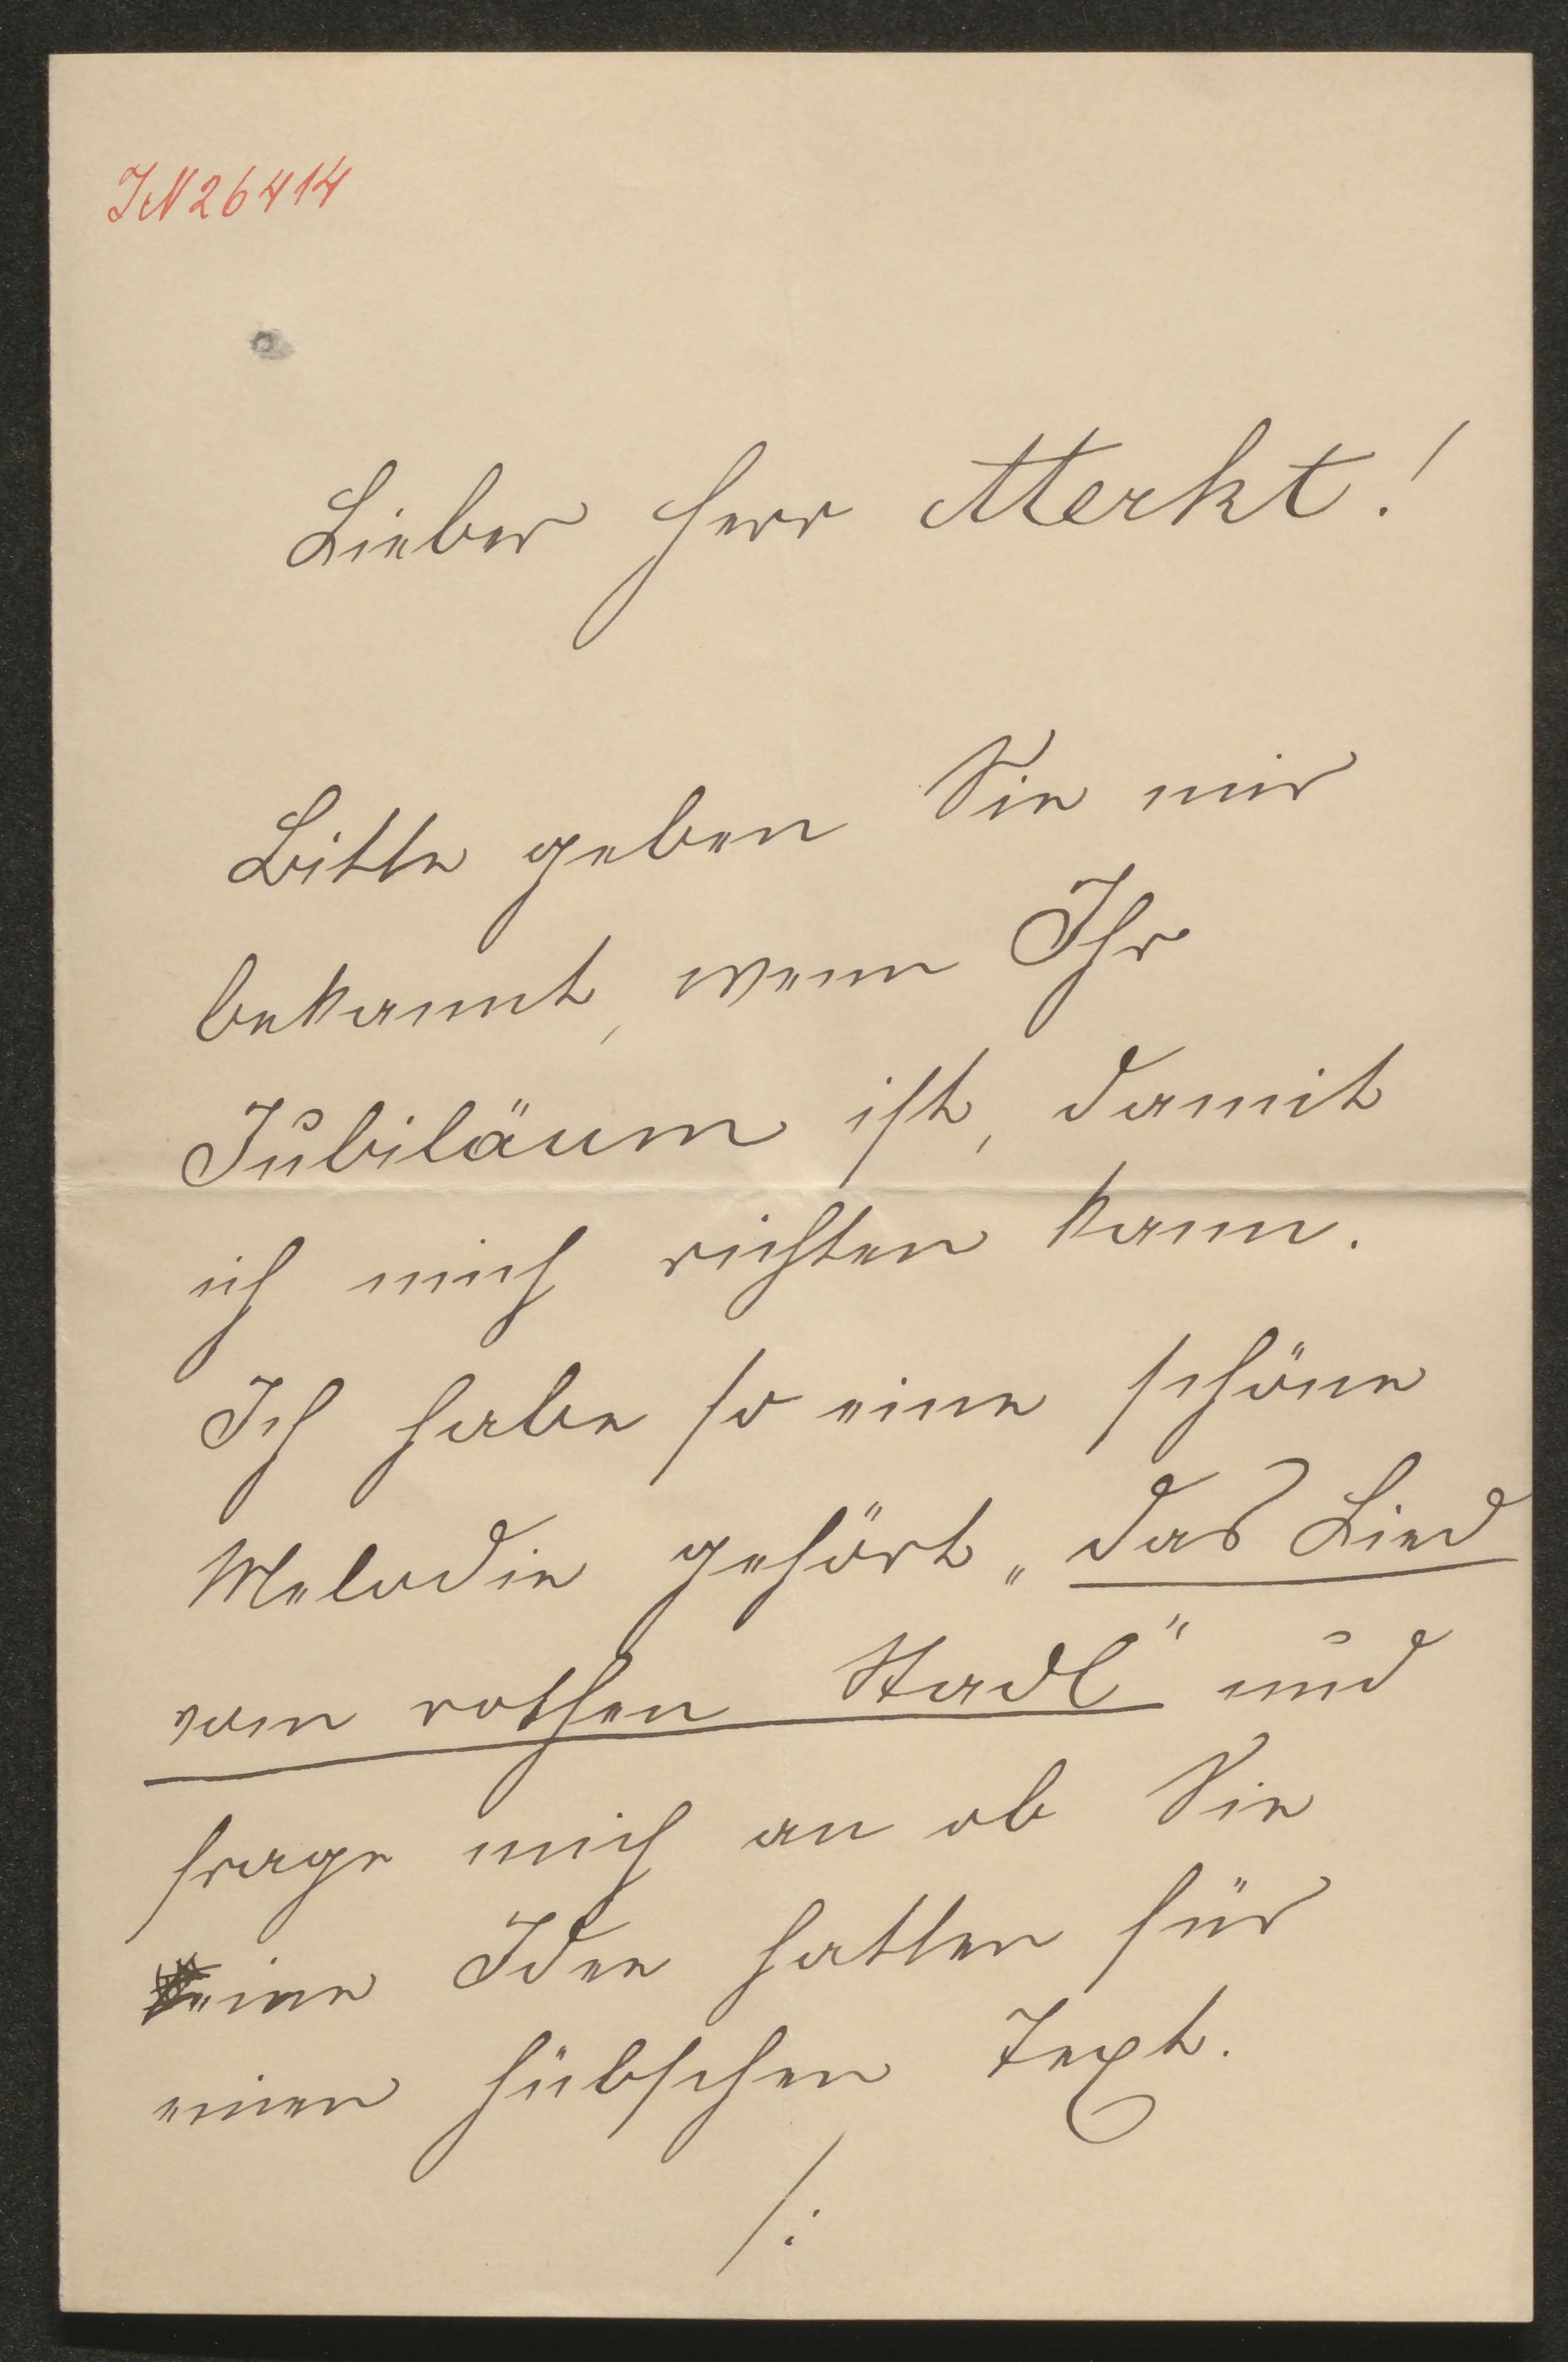 IN 26414
Lieber Herr Merkt!
Bitte geben Sie mir
bekannt, wenn Ihr
Jubiläum ist, damit
ich mich richten kann.
Ich habe so eine schöne
Melodie gehört „das Lied
vom rothen Stadl" und
frage mich an ob Sie
eine Idee hatten für
einen hübschen Text.
/: